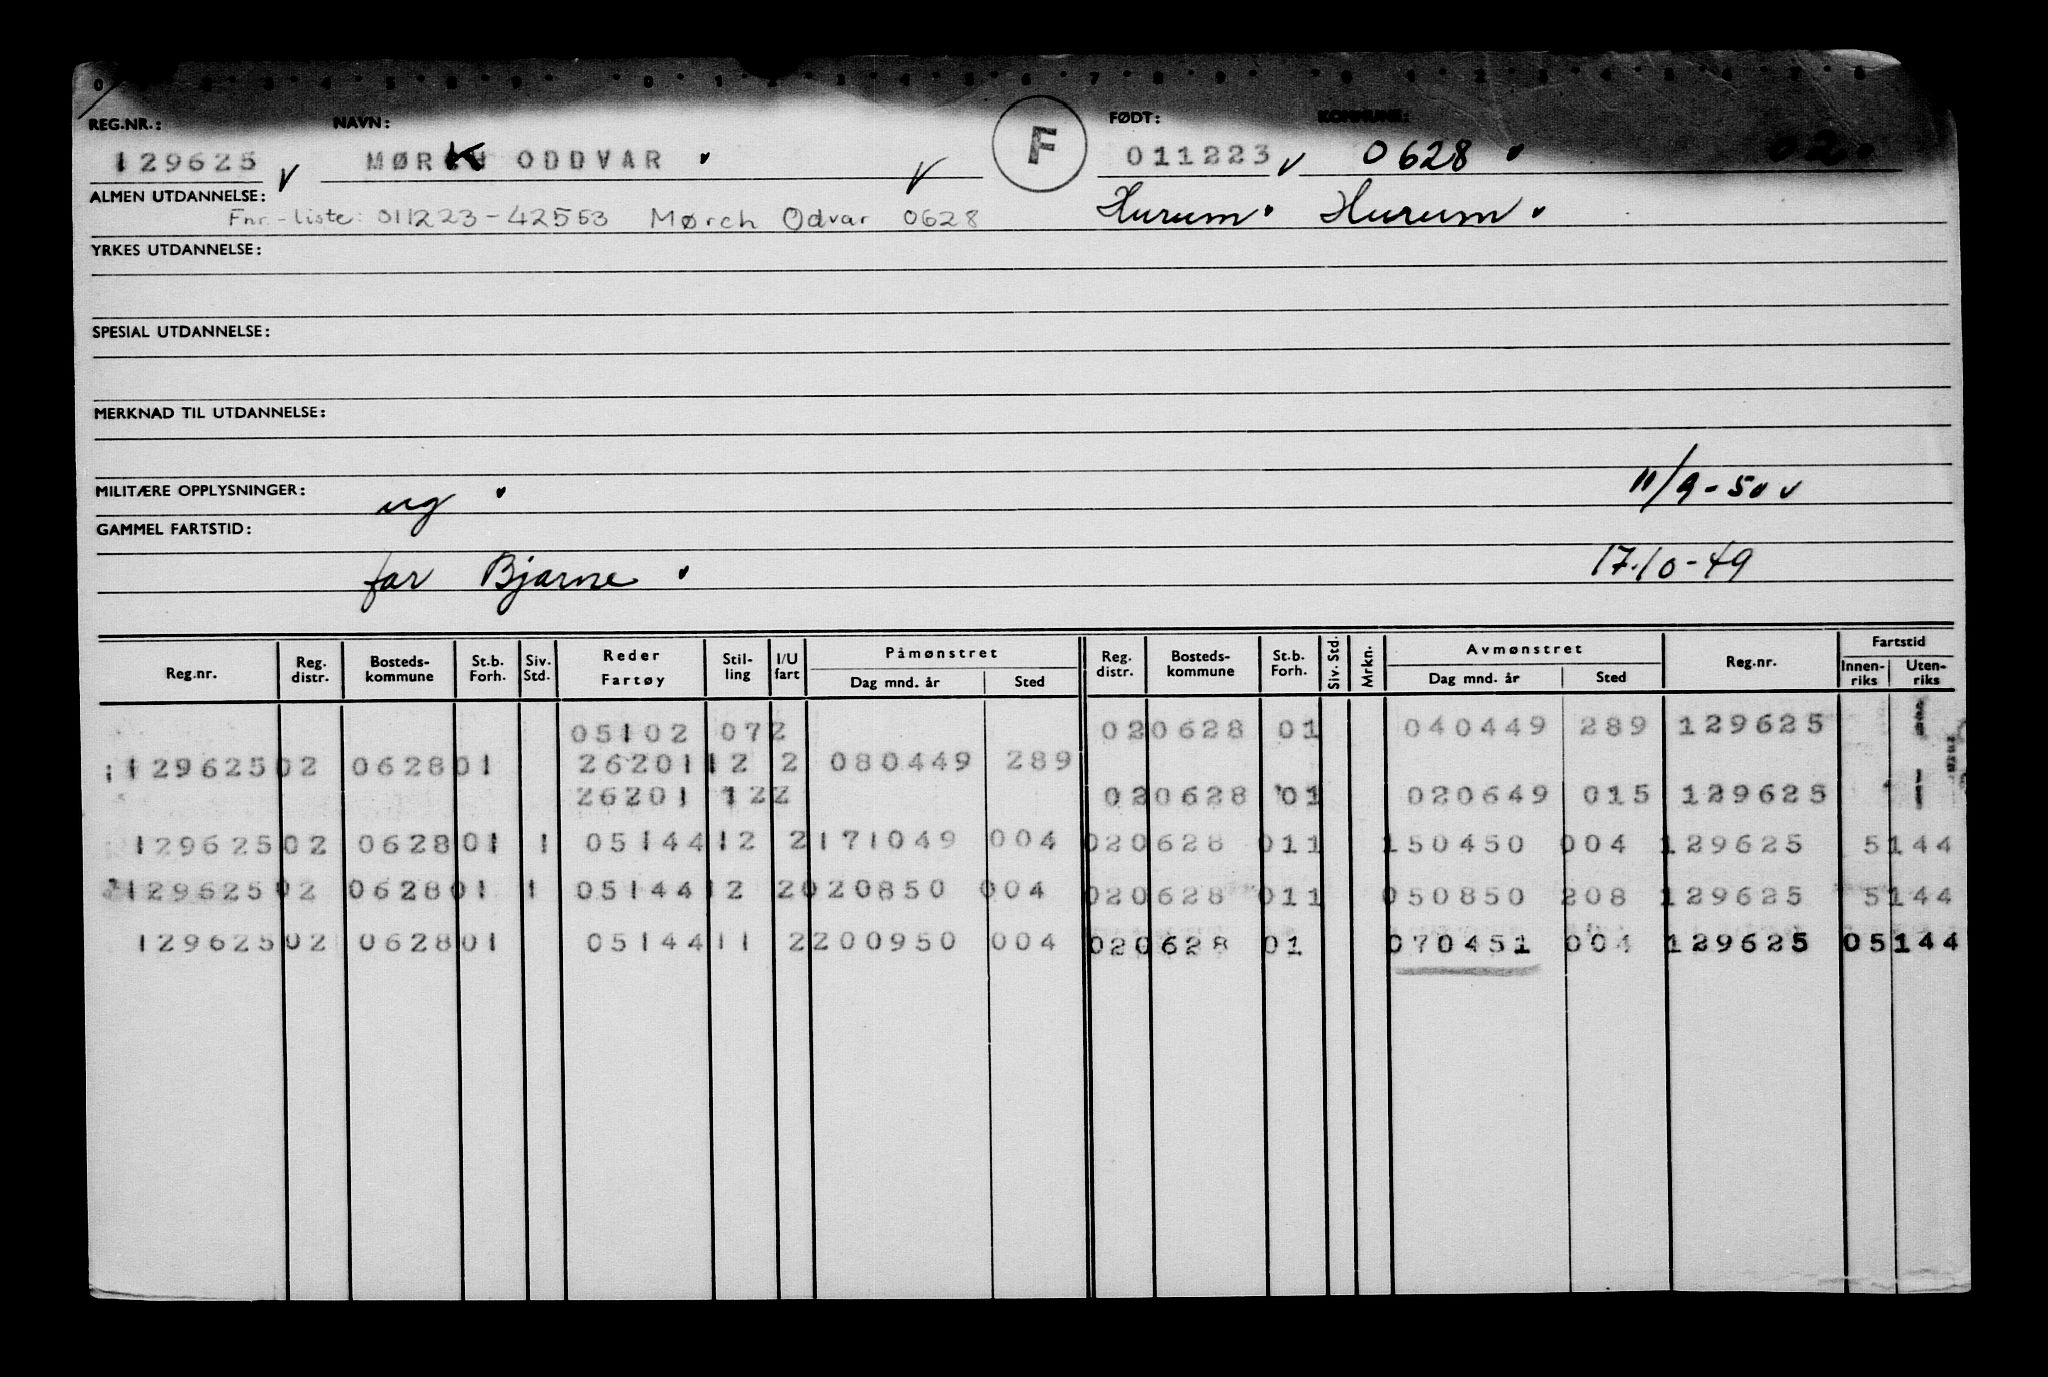 REG.NR.: NAVN: F FØDT: KOMMUNE:
129625 v MØRK ODDVAR v 011223 v 0628 02
ALMEN UTDANNELSE: Hurum Hurum
Fnr.-liste: 011223-42553 Mørch Odvar 0628
YRKES UTDANNELSE:
SPESIAL UTDANNELSE:
MERKNAD TIL UTDANNELSE:
MILITÆRE OPPLYSNINGER: ug 11/9-50 v
GAMMEL FARTSTID:
far Bjarne 17.10-49
Reg.nr. Reg. distr. Bosteds-kommune St.b. Forh. Siv. Std. Reder Fartøy Stil-ling I/U fart Påmønstret Dag mnd. år Sted Reg. distr. Bosteds-kommune St.b. Forh. Siv. Std. Mrkn. Avmønstret Dag mnd. år Sted Reg.nr. Fartstid Innen-riks Uten-riks
05102 072 020628 01 040449 289 129625
12962502 062801 26201 12 2 080449 289
26201 122 020628 01 020649 015 129625
12962502 062801 1 05144 12 2 171049 004 020628 011 150450 004 129625 5144
12962502 062801 1 05144 12 2 020850 004 020628 011 050850 208 129625 5144
12962502 062801 05144 11 2 200950 004 020628 01 070451 004 129625 05144